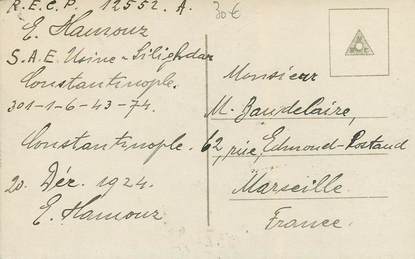 R.E.C.P. 12552. A.
30€
E. Hamouz
S.A.E. Usine - Silighdar
Constantinople.
301-1-6-43-74.
Constantinople.
20 Déc. 1924.
E. Hamouz
Monsieur
M. Baudelaire,
62, rue Edmond-Rostand
Marseille
France.